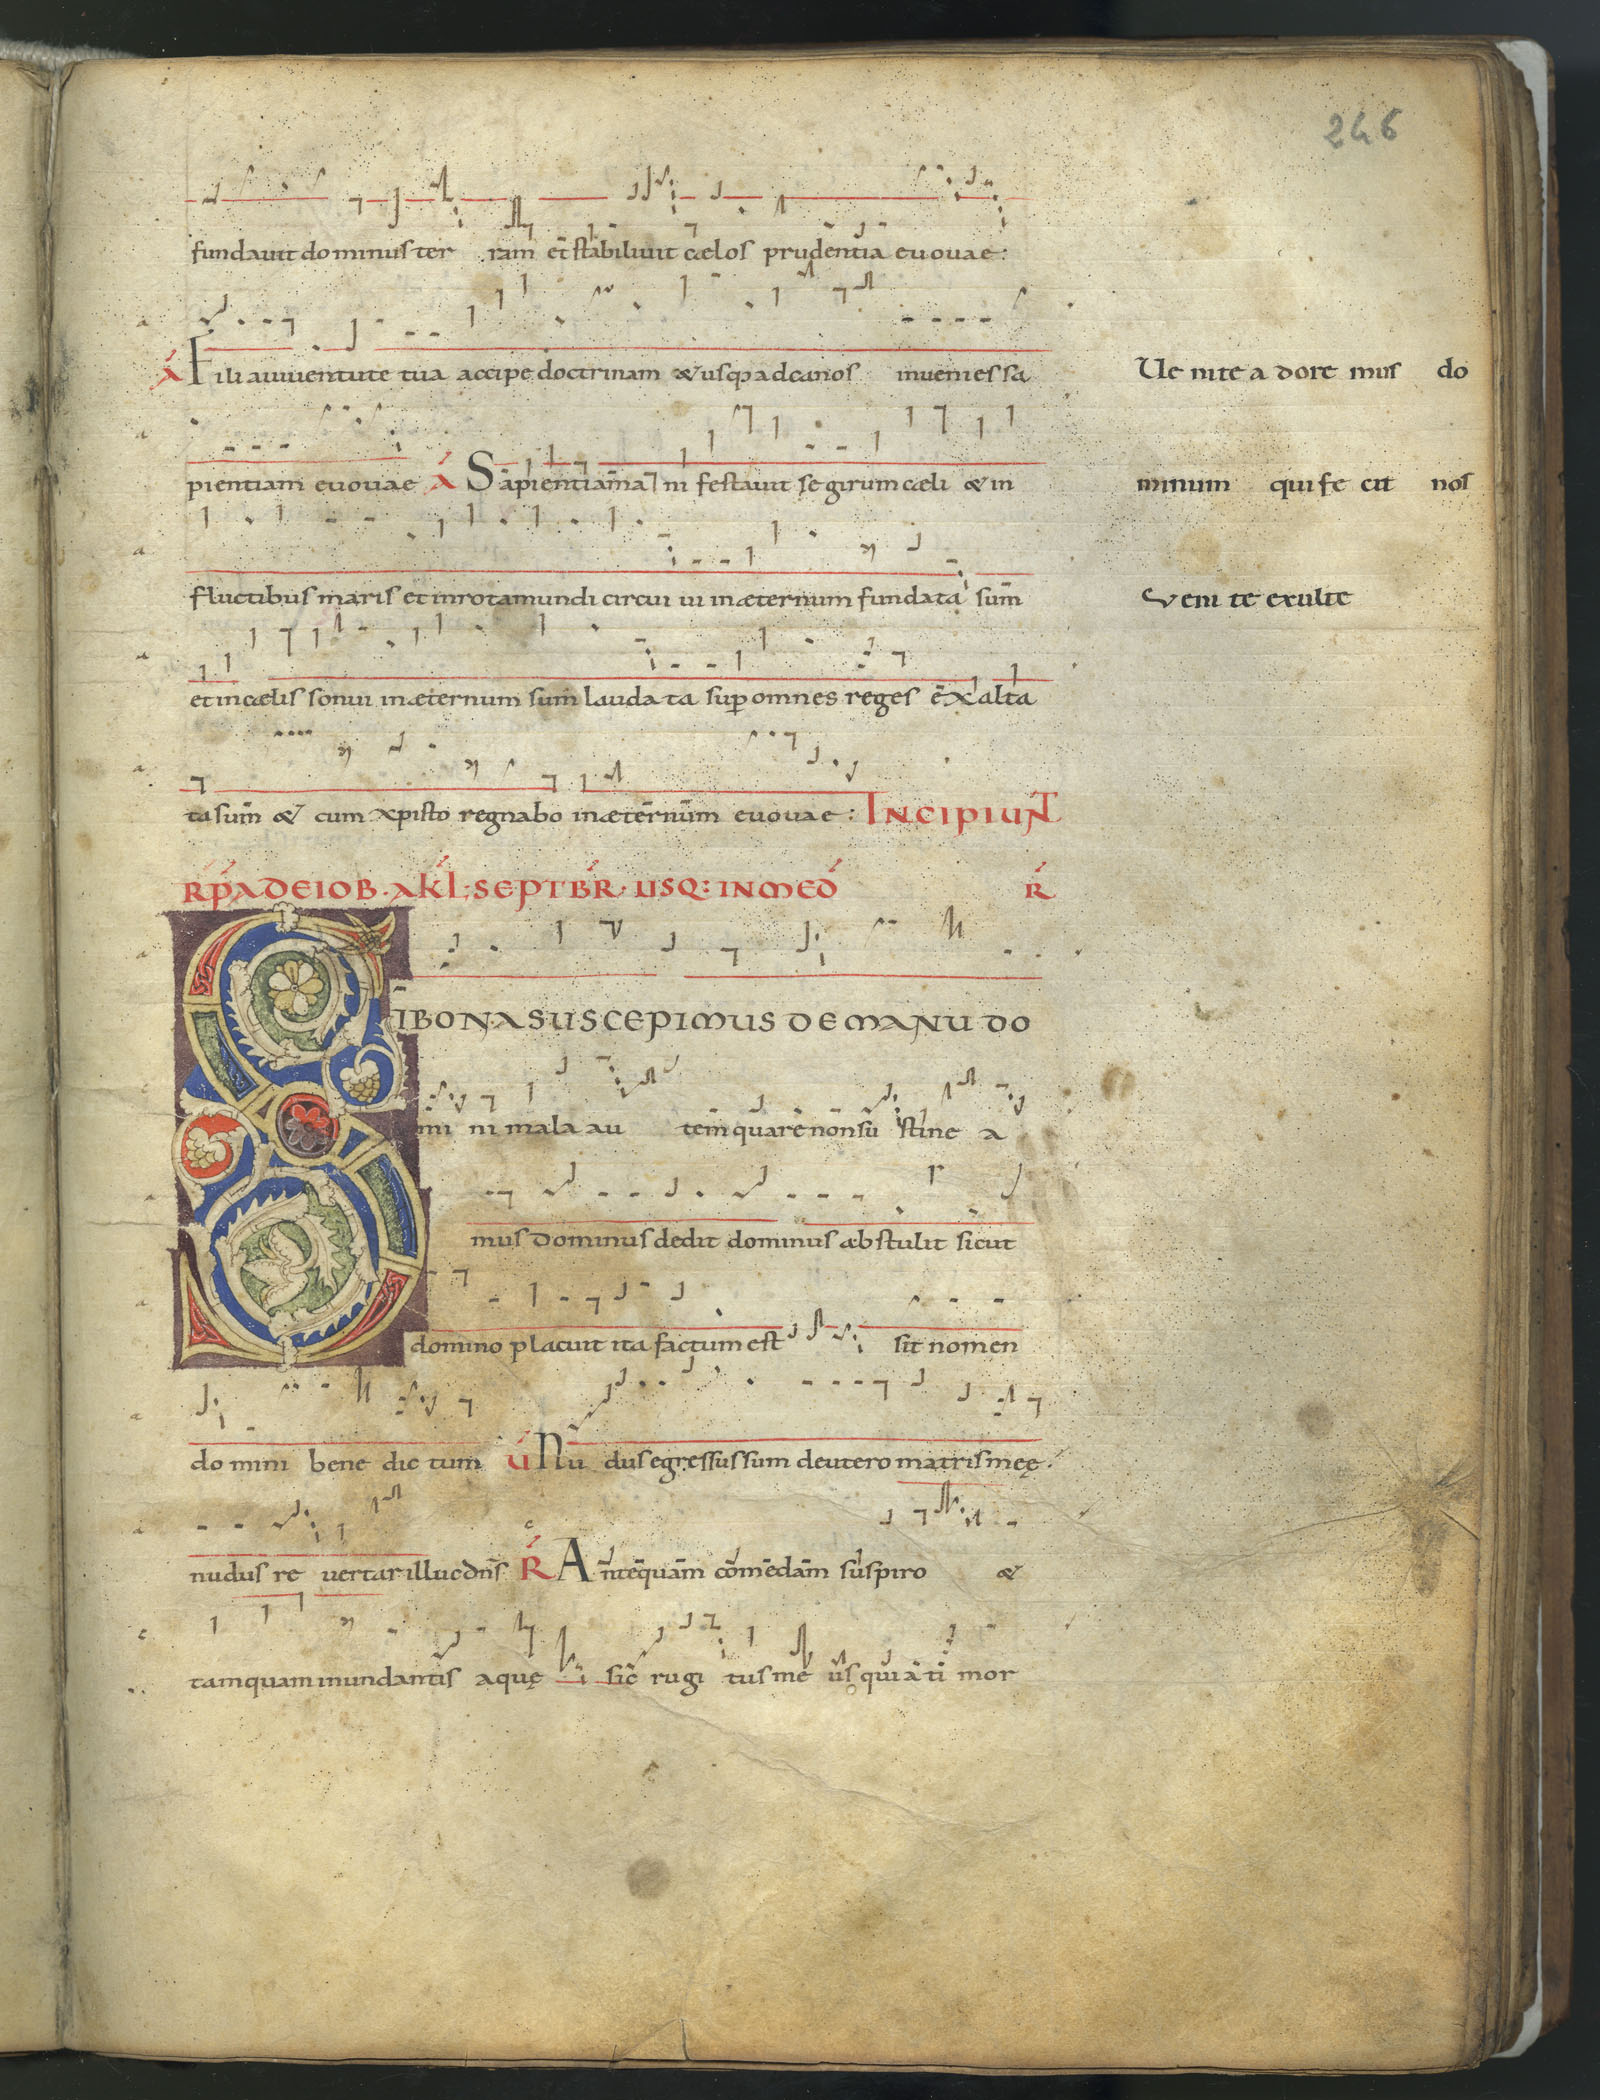 246
fundauit dominus ter ram et stabiliuit cælos prudentia euouae:
A Fili a iuuentute tua accipe doctrinam & usq; ad canos inuenies sa
pientiam euouae A Sapientia ma ni festauit se girum cæli & in
fluctibus maris et in rota mundi circui ui in æternum fundata sum
et in cælis sonui in æternum sum lauda ta sup omnes reges exalta
ta sum & cum xpisto regnabo in æternum euouae: INCIPIUNT
RP ADE IOB. A KL; SEPTBR. USQ: IN MED R
SI BONA SUSCEPIMUS DE MANU DO
mi ni mala au tem quare non su stine a
mus dominus dedit dominus abstulit sicut
domino placuit ita factum est sit nomen
do mini bene dic tum U Nu dus egressus sum de utero matris meę
nudus re uertar illuc dns R Antequam comedam suspiro &
tamquam inundantis aquę sic rugi tus me us quia ti mor
Ue nite a dore mus do
minum qui fe cit nos
Veni te exulte